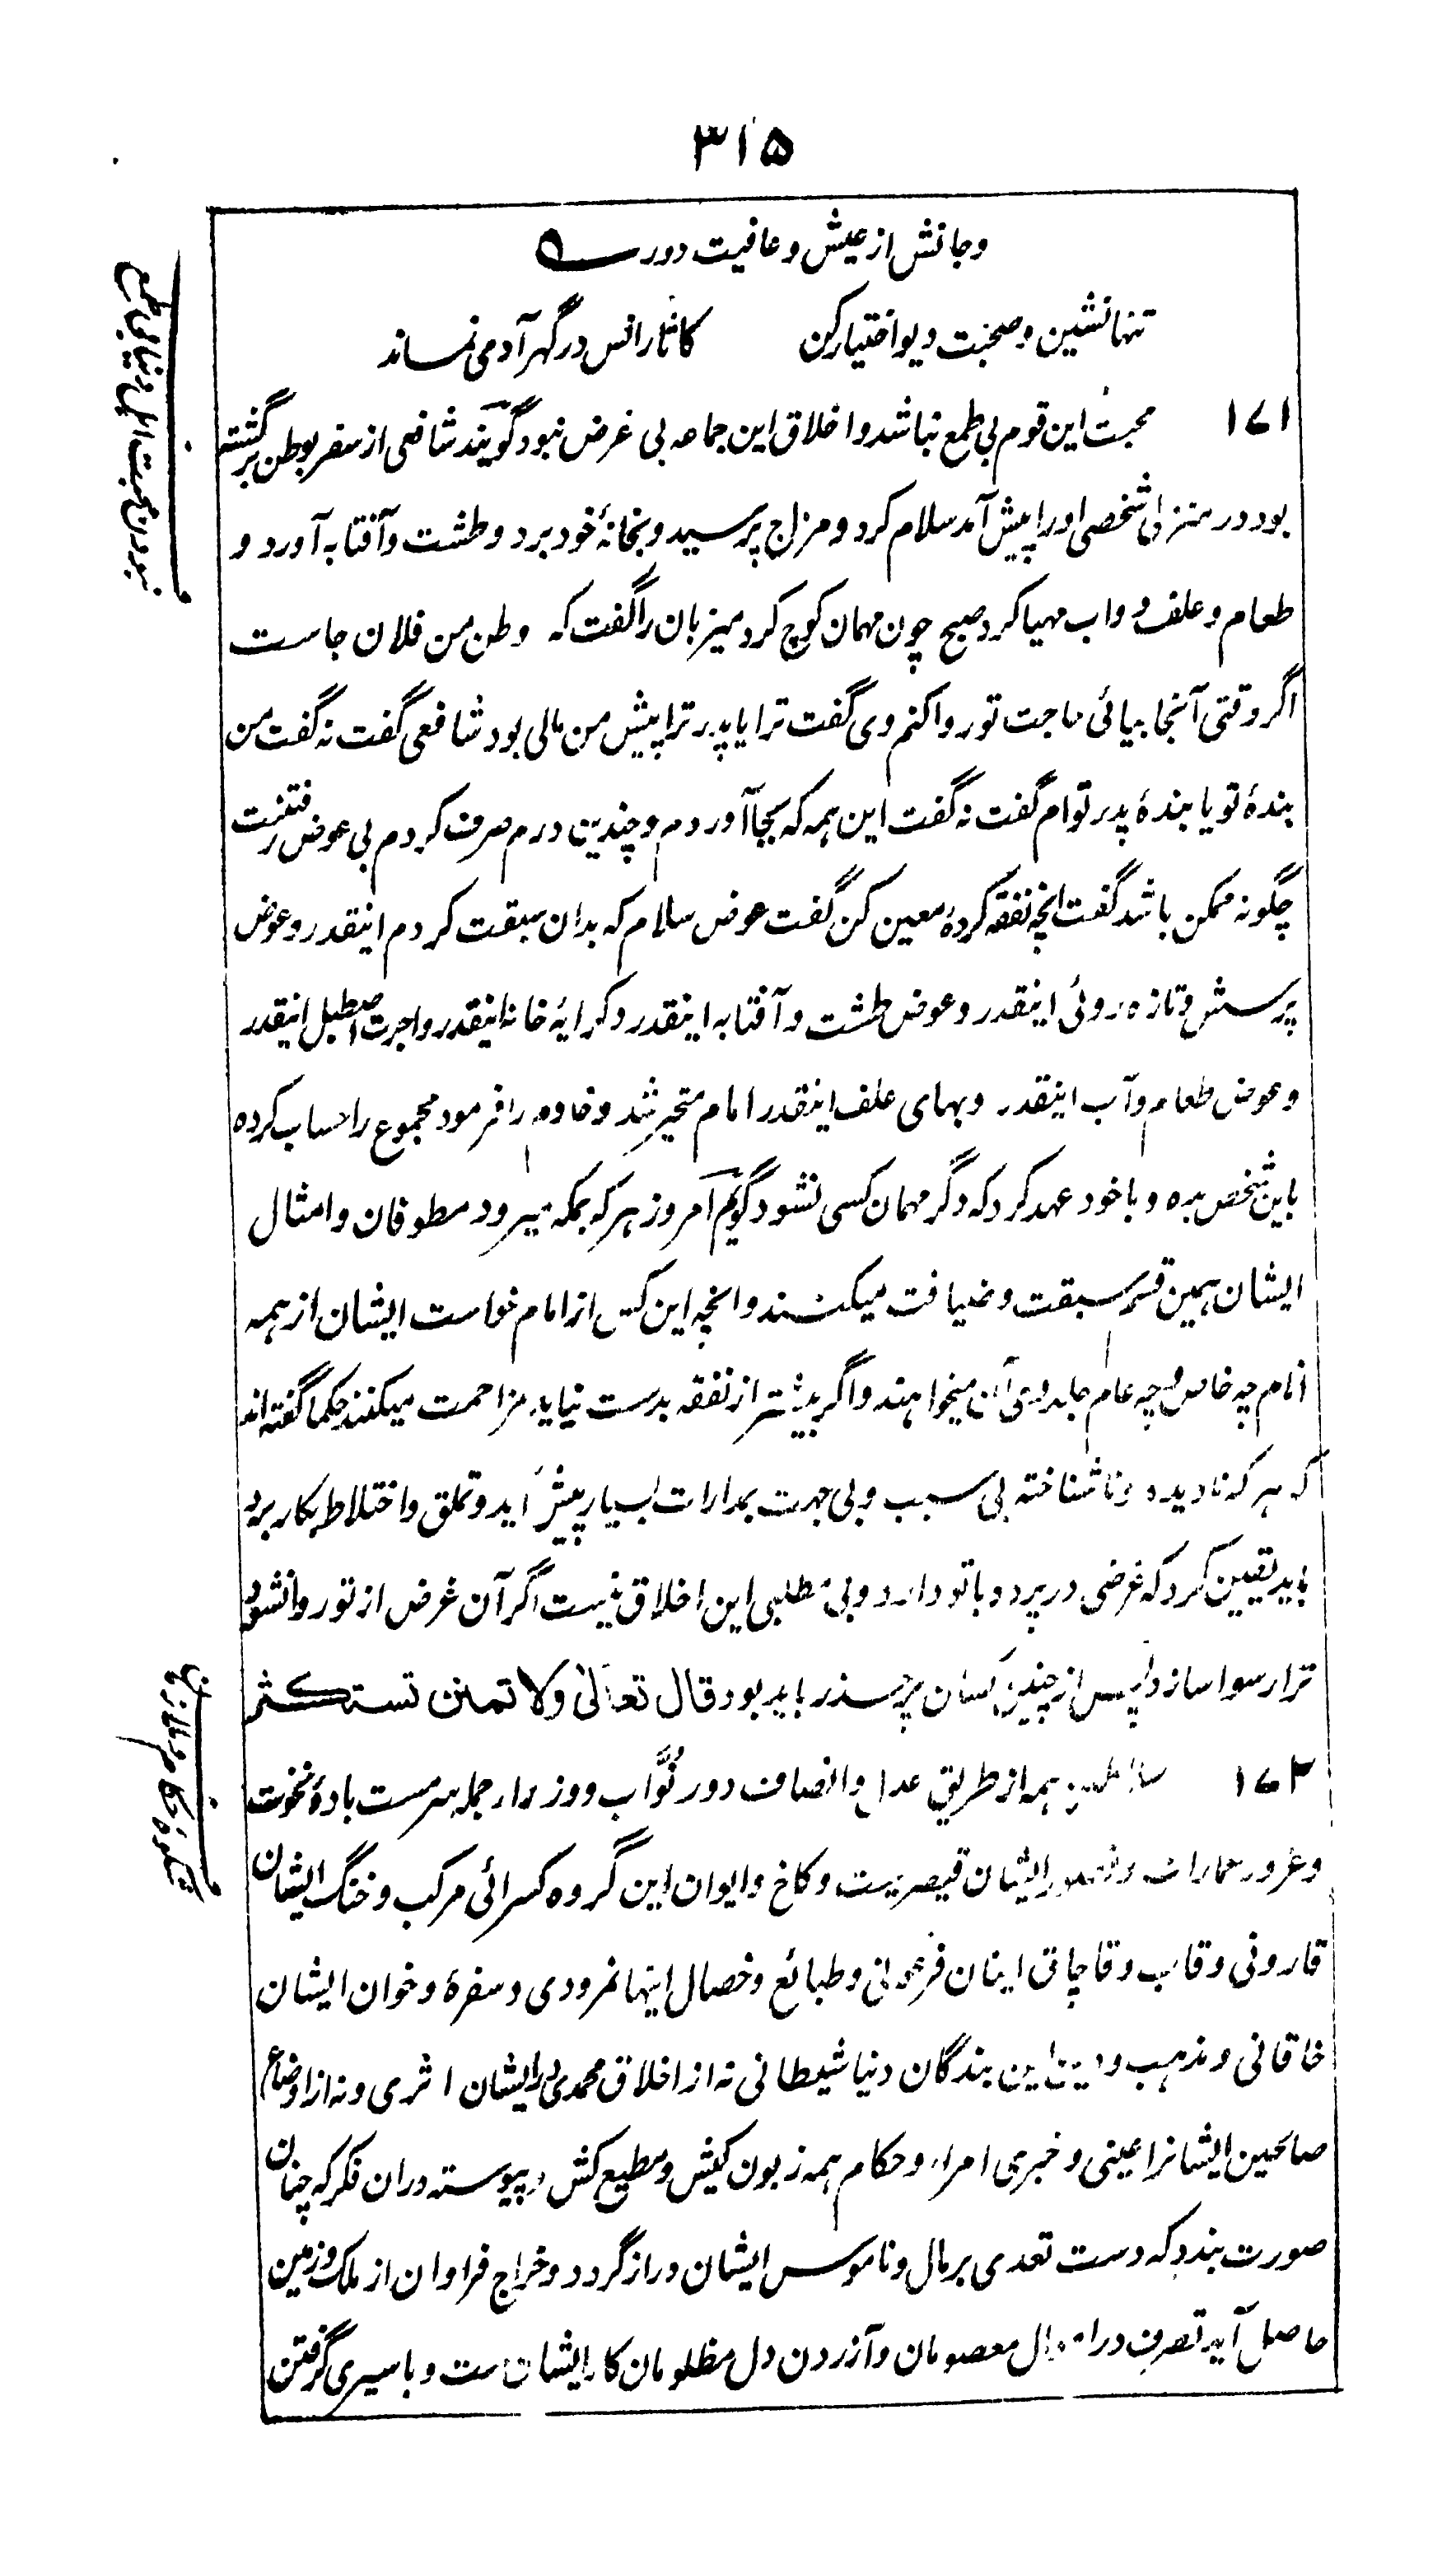 ۳۱۵
وجانش از عیش و عافیت دور
تنها نشین و صحبت دیو اختیار کن کاثار انس در گهر آدمی نماند
۱۷۱ محبت این قوم بی طمع نباشد و اخلاق این جماعه بی غرض نبود گویند شافعی از سفر بوطن برگشته
بود در منزلی شخصی او را پیش آمد سلام کرد و مزاج پرسید و بخانهٔ خود برد و طشت و آفتابه آورد و
طعام و علف دواب مهیا کرد صبح چون مهمان کوچ کرد میزبان را گفت که وطن من فلان جاست
اگر وقتی آنجا بیائی حاجت تو روا کنم وی گفت ترا یا پدر ترا پیش من مالی بود شافعی گفت نه گفت من
بندهٔ تو یا بندهٔ پدر توام گفت نه گفت این همه که بجا آوردم و چندین درم صرف کردم بی عوض رفتنت
چگونه ممکن باشد گفت انچه نفقه کردهٔ معین کن گفت عوض سلام که بدان سبقت کردم اینقدر و عوض
پرسش و تازه روئی اینقدر و عوض طشت و آفتابه اینقدر و کرایهٔ خانه اینقدر و اجرت اصطبل اینقدر
و عوض طعام و آب اینقدر و بهای علف اینقدر امام متحیر شد و خادم را فرمود مجموع را حساب کرده
باین شخص بده و با خود عهد کرد که دگر مهمان کسی نشود گویم امروز هر که بمکه میرود مطوفان و امثال
ایشان بهمین قسم سبقت و ضیافت میکنند و انچه این کس از امام خواست ایشان از همه
انام چه خاص و چه عام جلدوی آن میخواهند و اگر بیشتر از نفقه بدست نیاید مزاحمت میکنند حکما گفته اند
که هر که نادیده و ناشناخته بی سبب و بی جهت بمدارات بسیار پیش آید و تملق و اختلاط بکار برد
باید یقین کرد که غرضی در پرده با تو دارد و بی مطلبی این اخلاق نیست اگر آن غرض از تو روا نشود
ترا رسوا سازد پس از چنین کسان پر حذر باید بود قال تعالی ولا تمنن تستکثر
۱۷۲ سلاطین همه از طریق عدل و انصاف دور نُوّاب و وزرا از جمله سرمست بادهٔ نخوت
و غرور عمارات و قصور ایشان قیصریست و کاخ و ایوان این گروه کسرائی مرکب و خنگ ایشان
قارونی و قاب و قاچاق اینان فرعونی و طبائع و خصال اینها نمرودی و سفرهٔ و خوان ایشان
خاقانی و مذهب و دین این بندگان دنیا شیطانی نه از اخلاق محمدی بر ایشان اثری و نه از اوضاع
صالحین ایشانرا عینی و خبری امراء و حکام همه زبون کیش و مطیع کش و پیوسته دران فکر که چنان
صورت بندد که دست تعدی بر مال و ناموس ایشان دراز گردد و خراج فراوان از ملک و زمین
حاصل آید تصرف در اموال معصومان و آزردن دل مظلومان کار ایشان ست و باسیری گرفتن
نبودن محبت اهل دنیا بی طمع
شکوهٔ حکام و